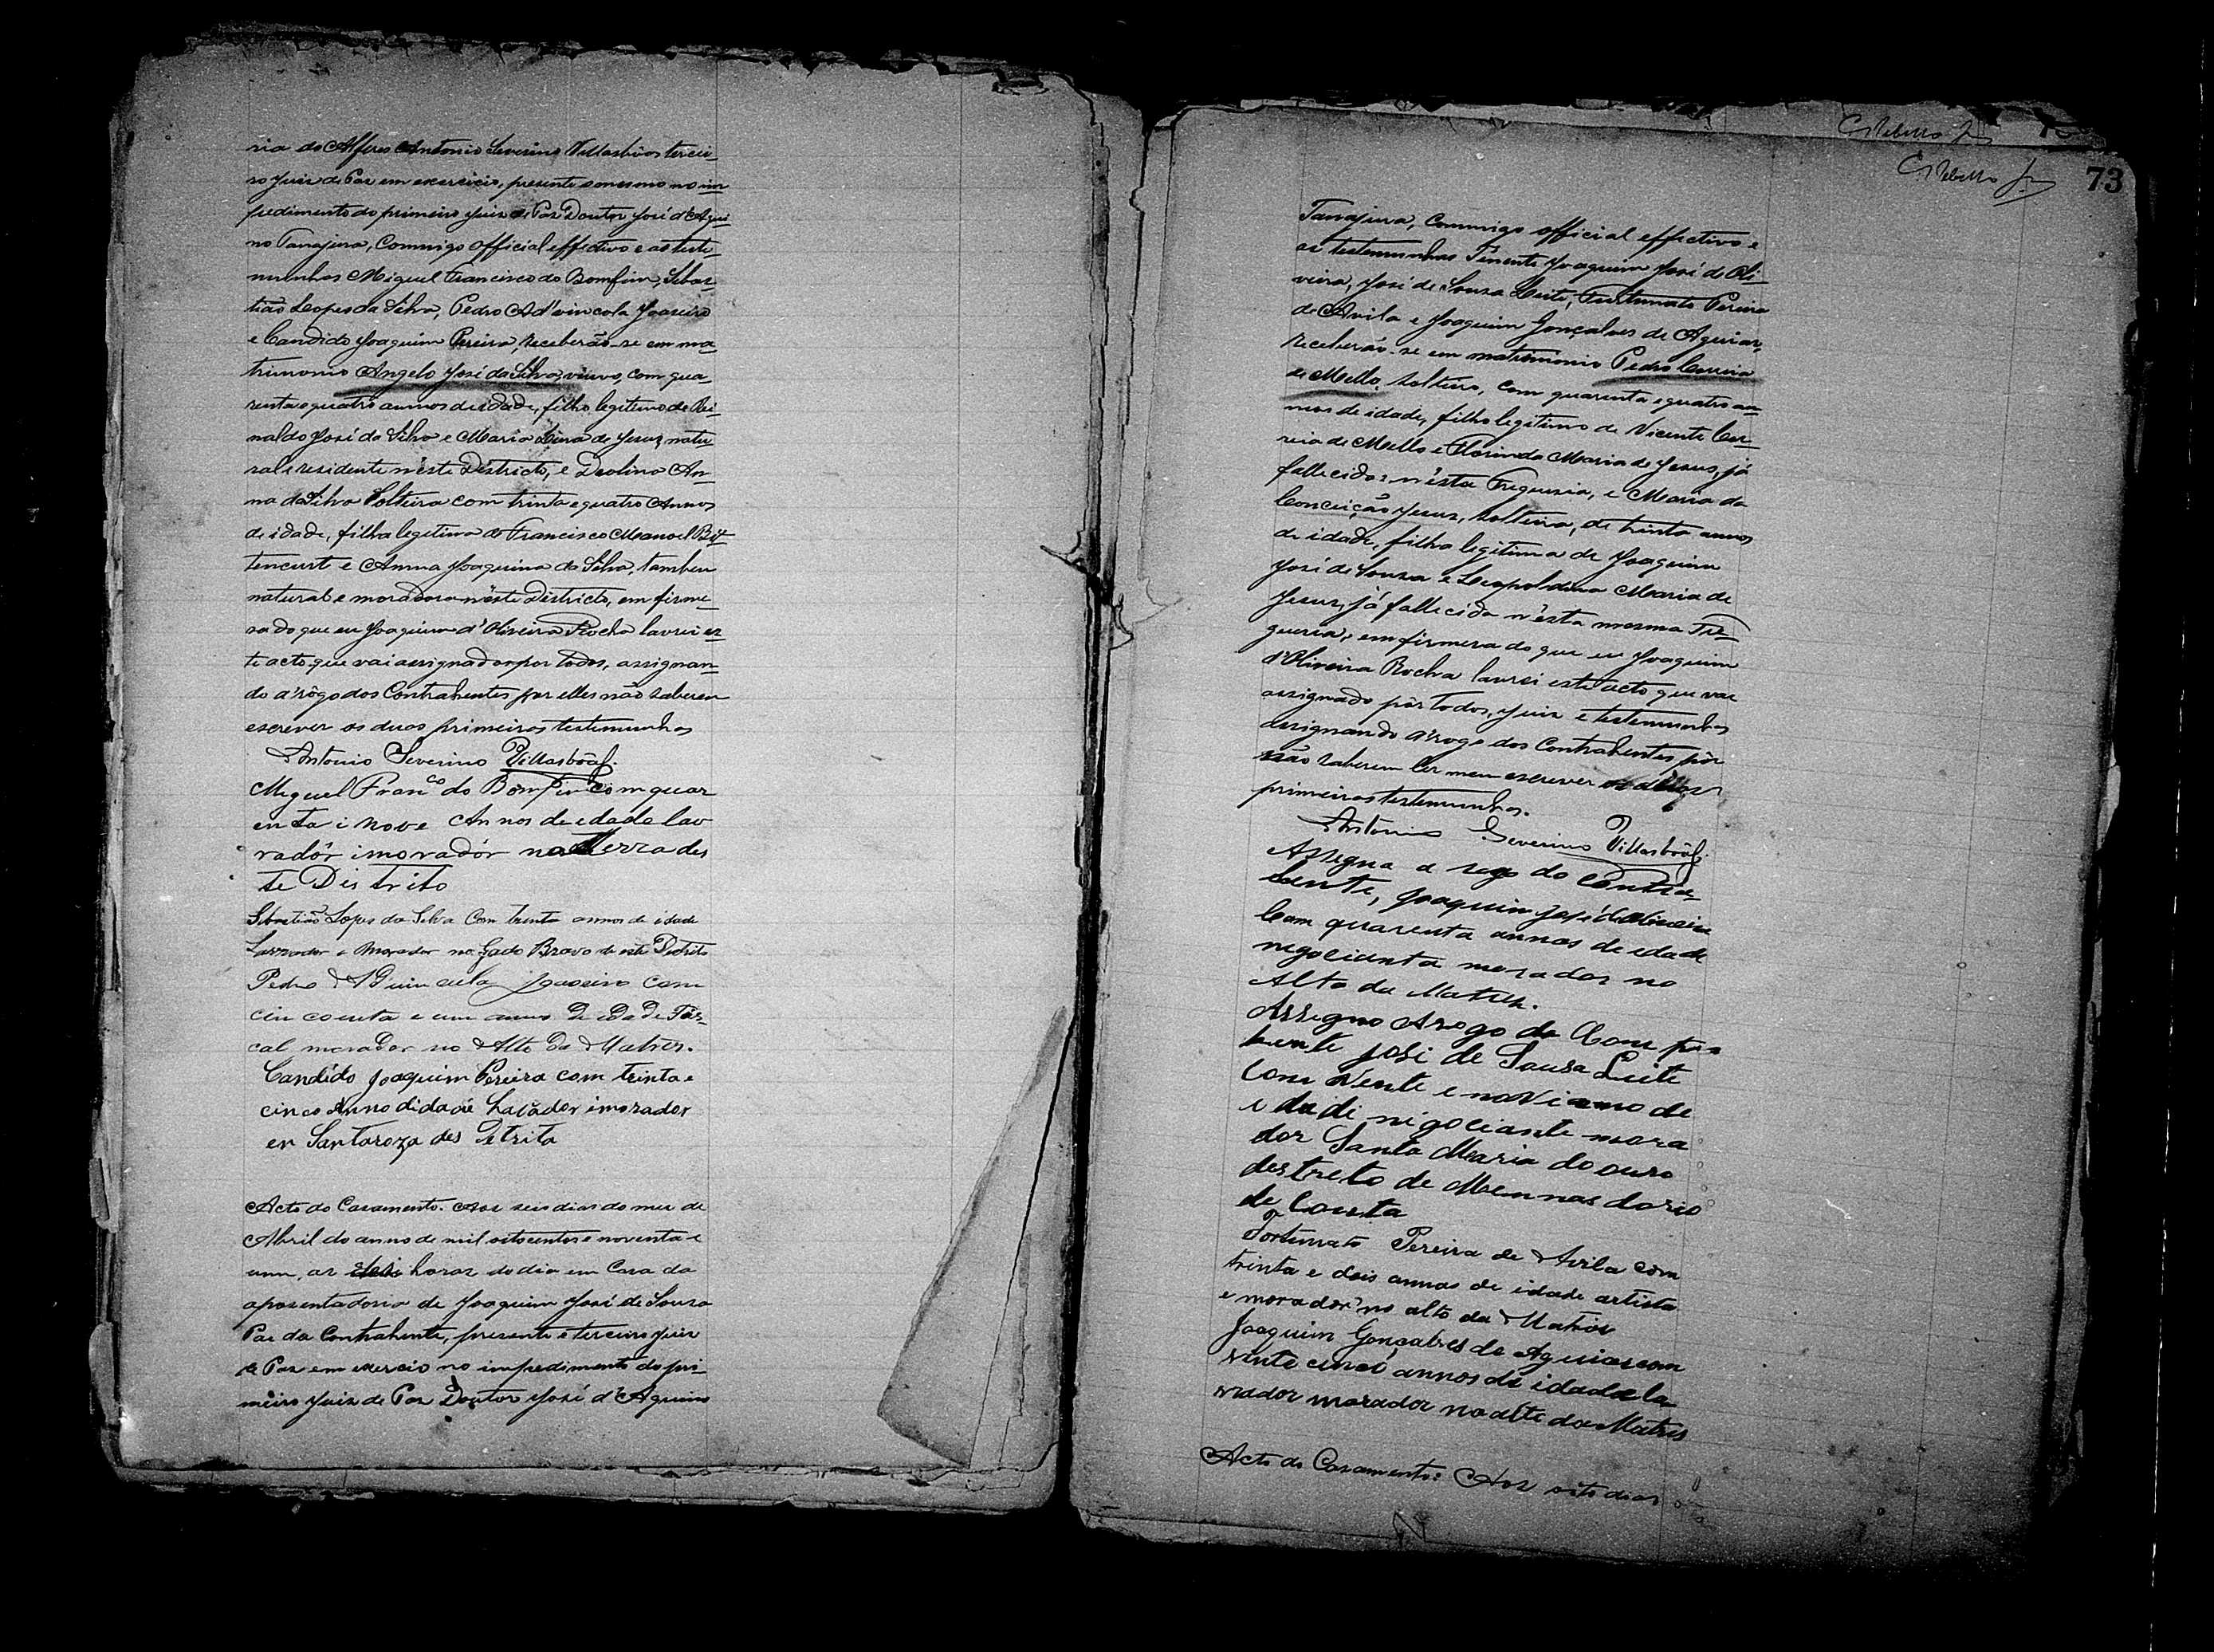 ria do Alferes Antonio Severino Villasbôas tercei-
ro Juiz de Paz em exercicio, presente o mesmo no im-
pedimento do primeiro Juiz de Paz Doutor José d'Aqui-
no Tanajura, Commigo official effectivo e as teste-
munhas Miguel Francisco do Bomfim, Sebas-
tião Lopes da Silva, Pedro Ad'vincola Joazeiro
e Candido Joaquim Pereira, receberão-se em ma-
trimonio Angelo José da Silva, viuvo, com qua-
renta e quatro annos de idade, filho legitimo de Rei-
naldo José da Silva e Maria de Jesus, natu-
ral e residente n'este Districto, e Deolina An-
na da Silva Solteira com trinta e quatro Annos
de idade, filha legitima de Francisco Manoel Bit-
tencurt e Anna Joaquina da Silva, tambem
natural e moradora n'este Districto, em firme-
sa do que eu Joaquim d'Oliveira Rocha lavrei es-
te acto que vai assignado por todos, assignan-
do a'rôgo dos Contrahentes por elles não saberem
escrever as duas primeiras testemunhas
Antonio Severino Villasbôas.
Miguel Franco do Bomfim com quar
enta i nove Annos de edade lav
radôr i moradôr na Serra des
te Distrito
Sebastião Lopes da Silva Com trinta annos de idade
Lavrador e Morador no Gado Bravo de este Destrito
Pedro Joazeiro com
cincoenta e um annos de idade Fis-
cal morador no Alto da Matris.
Candido Joaquim Pereira com trinta e
cinco Anno didade Lavador i morador
en Santaroza des Detrito
Acto do Casamento. Aos seis dias do mez de
Abril do anno de mil oitocentos e noventa e
um, as horas do dia em Casa da
aposentadoria de Joaquim José de Souza
Pae da Contrahente, presente o terceiro Juiz
de Paz em exercio no impedimento do pri-
meiro Juiz de Paz Doutor José d'Aquino
C. Rebello Jr
C. Rebello Jr
73
Tanajura, Commigo official effectivo e
as testemunhas Tenente Joaquim José de Oli-
veira, José de Souza Leite, Furtunato Pereira
de Avila e Joaquim Gonçalves de Aguiar,
receberão-se em matrimonio Pedro Correia
de Mello, solteiro, com quarenta e quatro an-
nos de idade, filho legitimo de Vicente Cor-
reia de Mello e Florinda Maria de Jesus, já
fallecidos n'esta Freguezia, e Maria da
Conceição Jesus, solteira, de trinta annos
de idade, filha legitima de Joaquim
José de Souza e Leopoldina Maria de
Jesus, já fallecida n'esta mesma Fre-
guezia, em firmeza do que eu Joaquim
d'Oliveira Rocha lavrei este acto que vae
assignado por todos, Juiz e testemunhas
assignando a'rogo dos Contrahentes por
não saberem ler nem escrever as duas
primeiras testemunhas.
Antonio Severino Villasbôas.
Assegna a rogo do Contra-
hente, Joaquim José de Oliveira
Com quarenta annos de idade
negocianta morador no
Alto da Matris.
Assegno Arogo da Contra
hente José de Sousa Leite
Com Vente e novi anno de
idadi nigociante mora
dor Santa Maria do ouro
destreto de Mennas do rio
de Conta
Fortunato Pereira de Avila com
trinta e dois annos de idade artista
e morador no alto da Matris
Joaquim Gonçalves de Aguiar com
vinte cinco annos de idade la
vrador morador no alto da Matris
Acto do Casamento: Aos oito dias